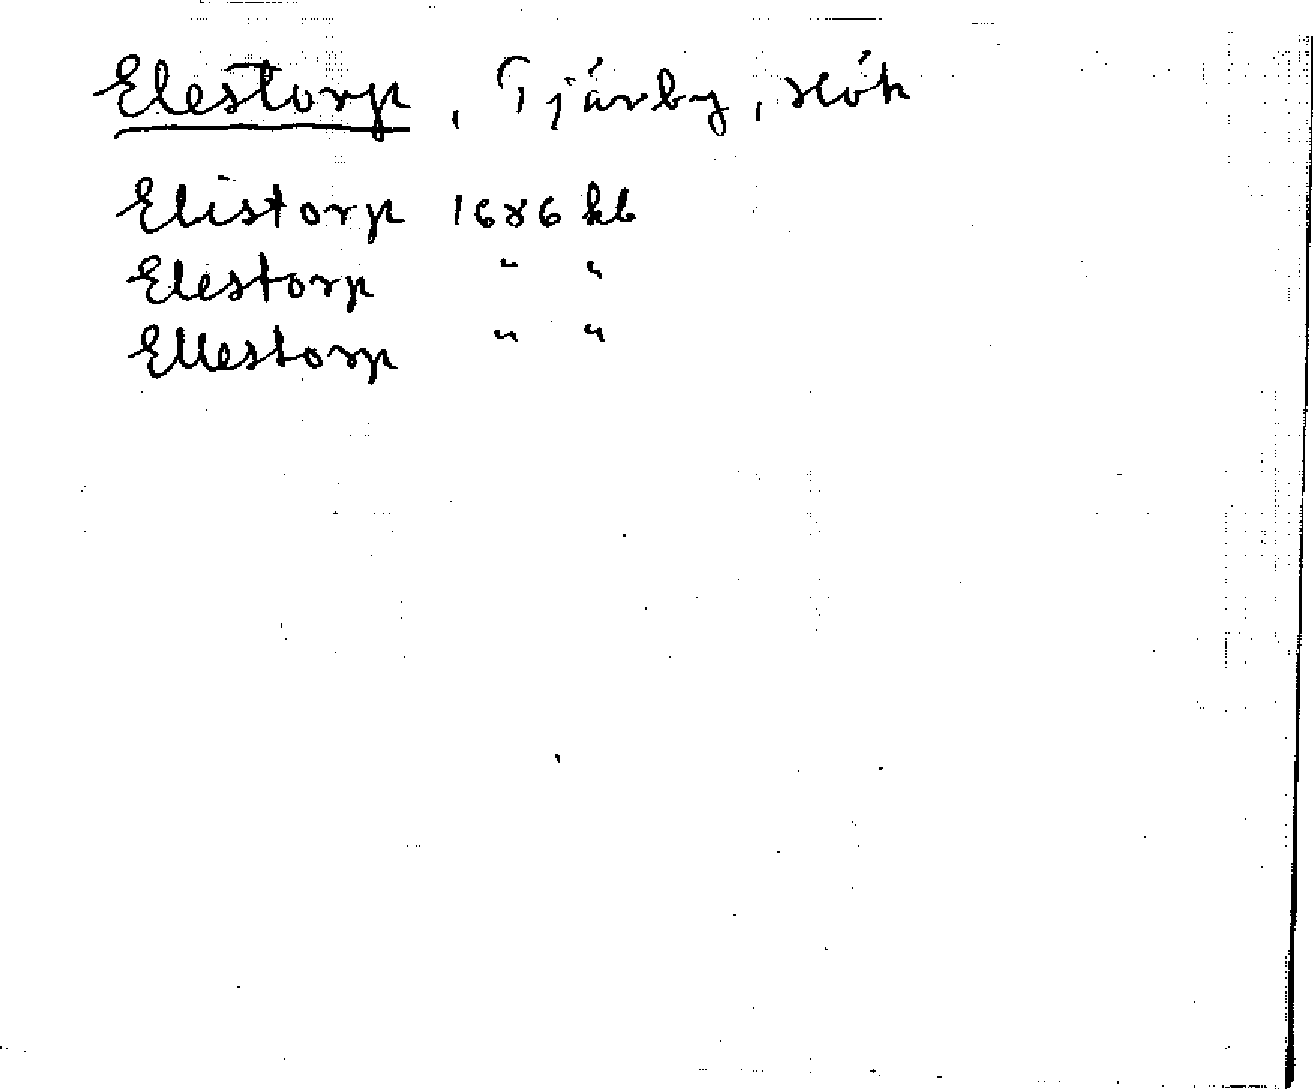 Elestorp, Tjärby, Hök
Elistorp 1686 kb
Elestorp " "
Ellestorp " "